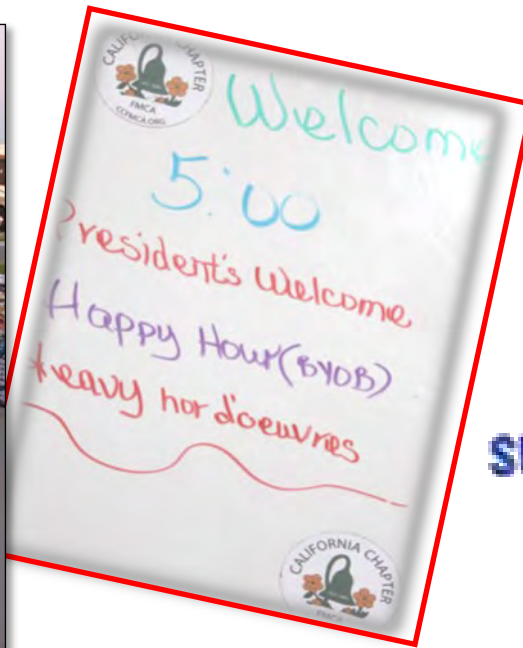 CALIFORNIA CHAPTER
FMCA
CCFMCA.ORG
Welcome
5:00
President's Welcome
Happy Hour (BYOB)
Heavy hor d'oeuvres
CALIFORNIA CHAPTER
FMCA